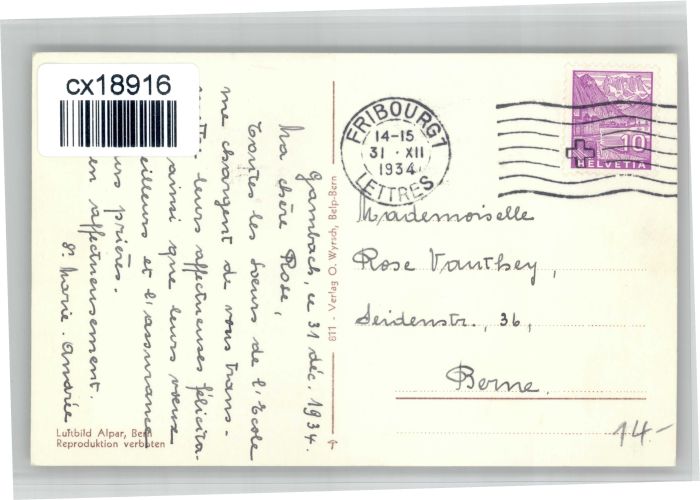 cx18916
Gambach, ce 31 déc. 1934.
Ma chère Rose,
Toutes les Soeurs de l'Ecole
me chargent de vous trans-
leurs affectueuses félicita-
ainsi que leurs voeux
eilleurs et l'assurance
urs prières.
en affectueusement.
Sr. Marie-Andrée
811 - Verlag O. Wyrsch, Belp-Bern
Luftbild Alpar, Bern
Reproduktion verboten
FRIBOURG 1
14-15
31.XII
1934
LETTRES
10
HELVETIA
Mademoiselle
Rose Vauthey,
Seidenstr., 36,
Berne.
14.-